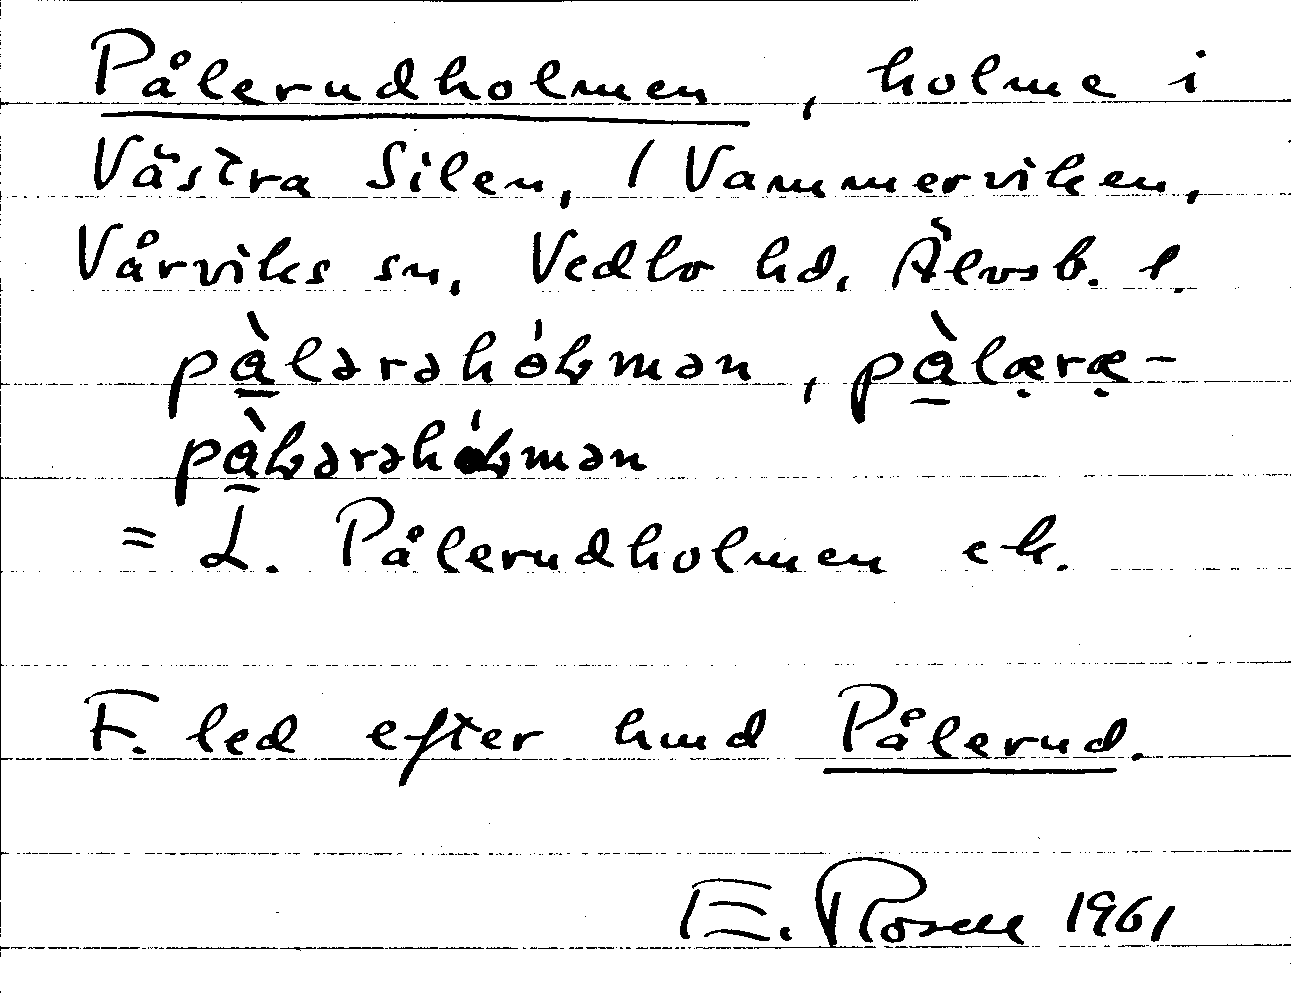 Pålerudholmen, holme i
Västra Silen, / Vammerviken,
Vårviks sn, Vedbo hd, Älvsb. l.
pàlərəhóɫmən, pàlæræ-
pàɫərəhóɫmən
= L. Pålerudholmen ek.
F. led efter hmd Pålerud.
E. Rosell 1961